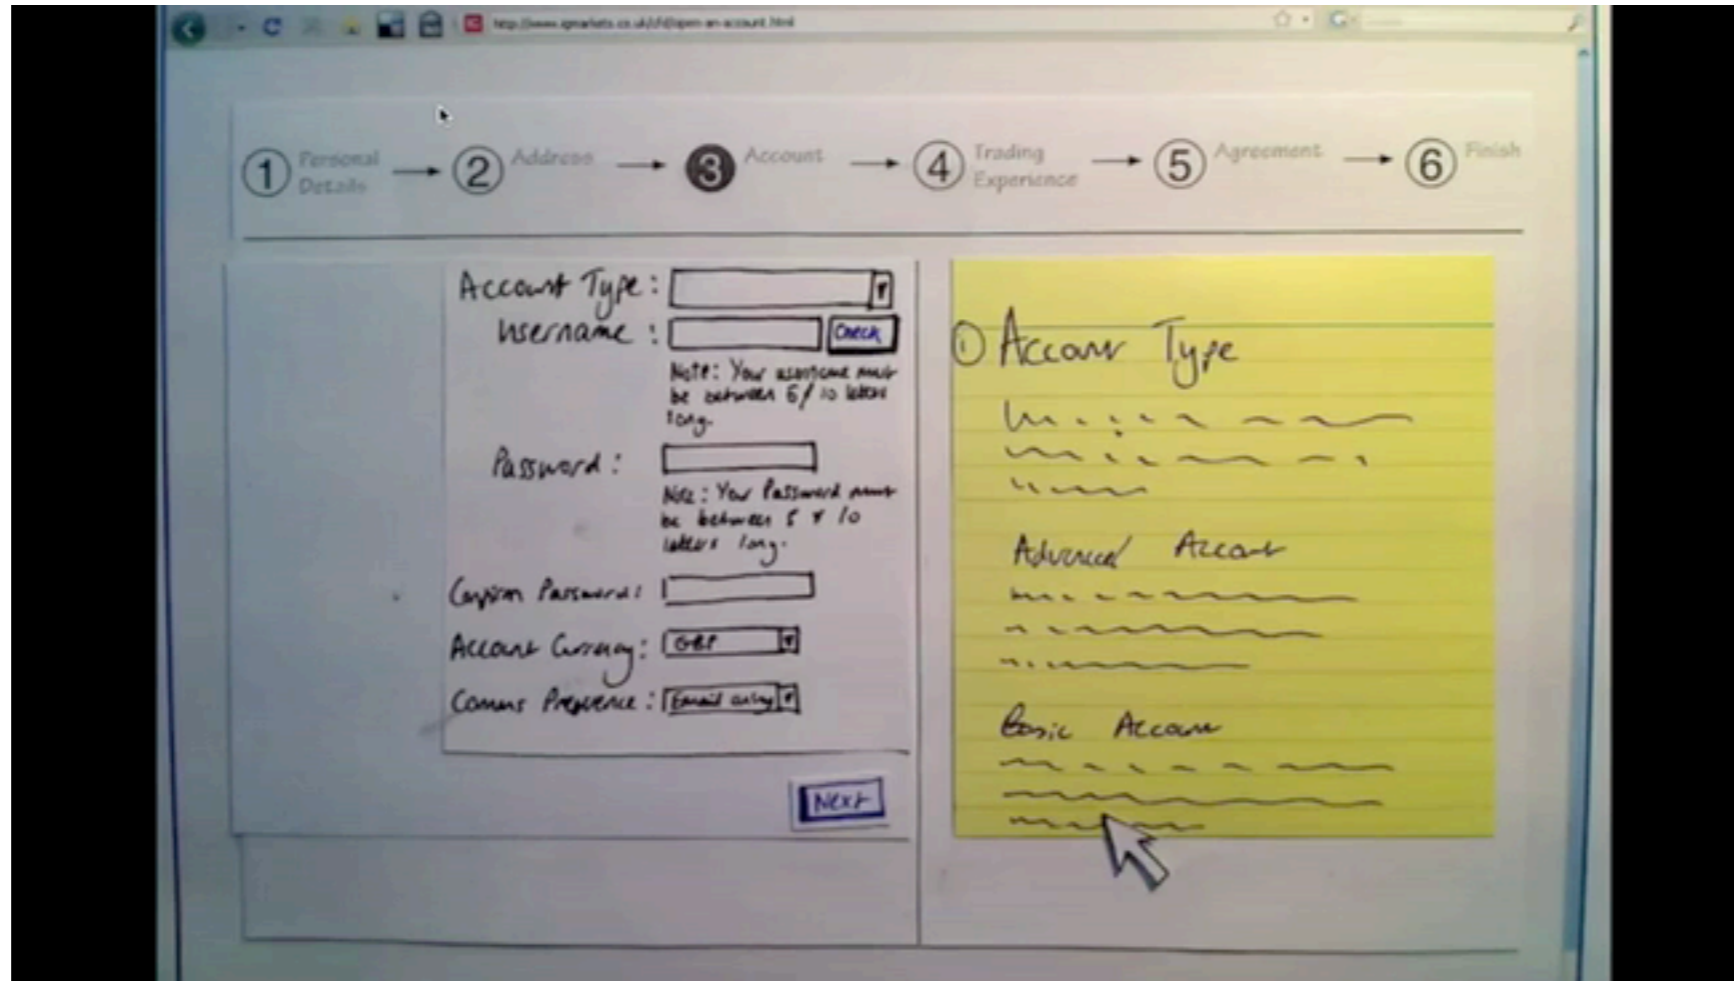 http://www.igmarkets.co.uk/cfd/open-an-account.html
1 Personal Details → 2 Address → 3 Account → 4 Trading Experience → 5 Agreement → 6 Finish
Account Type:
Username: Check
Note: Your username must
be between 5/10 letters
long.
Password:
Note: Your Password must
be between 5 & 10
letters long.
Confirm Password:
Account Currency: GBP
Comms Preference: Email only
Next
i Account Type
Advanced Account
Basic Account